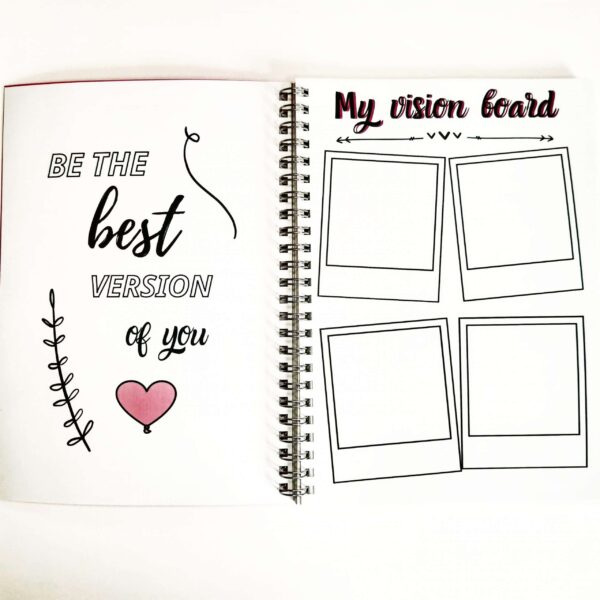 BE THE
best
VERSION
of you
My vision board